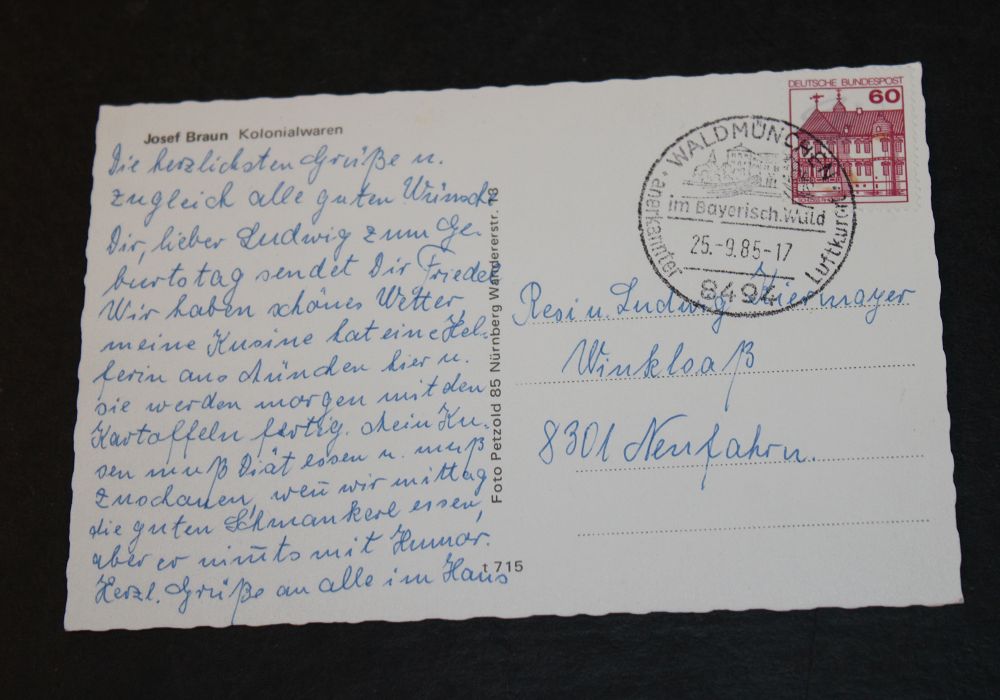 Josef Braun Kolonialwaren
Die herzlichsten Grüße u.
zugleich alle guten Wünsche
Dir, lieber Ludwig zum Ge-
burtstag sendet Dir Friedel
Wir haben schönes Wetter,
meine Kusine hat eine Hel-
ferin aus München hier u.
sie werden morgen mit den
Kartoffeln fertig. Mein Ku-
sen muß Diät essen u. muß
zuschauen, weñ wir mittag
die guten Schmankerl essen,
aber er nim̅ts mit Humor.
Herzl. Grüße an alle im Haus
Foto Petzold 85 Nürnberg Wandererstr. 78
t 715
DEUTSCHE BUNDESPOST
60
WALDMÜNCHEN
im Bayerisch. Wald
25.-9.85-17
anerkannter Luftkurort
8494
Resi u. Ludwig
Winkloaß
8301 Neufahrn.